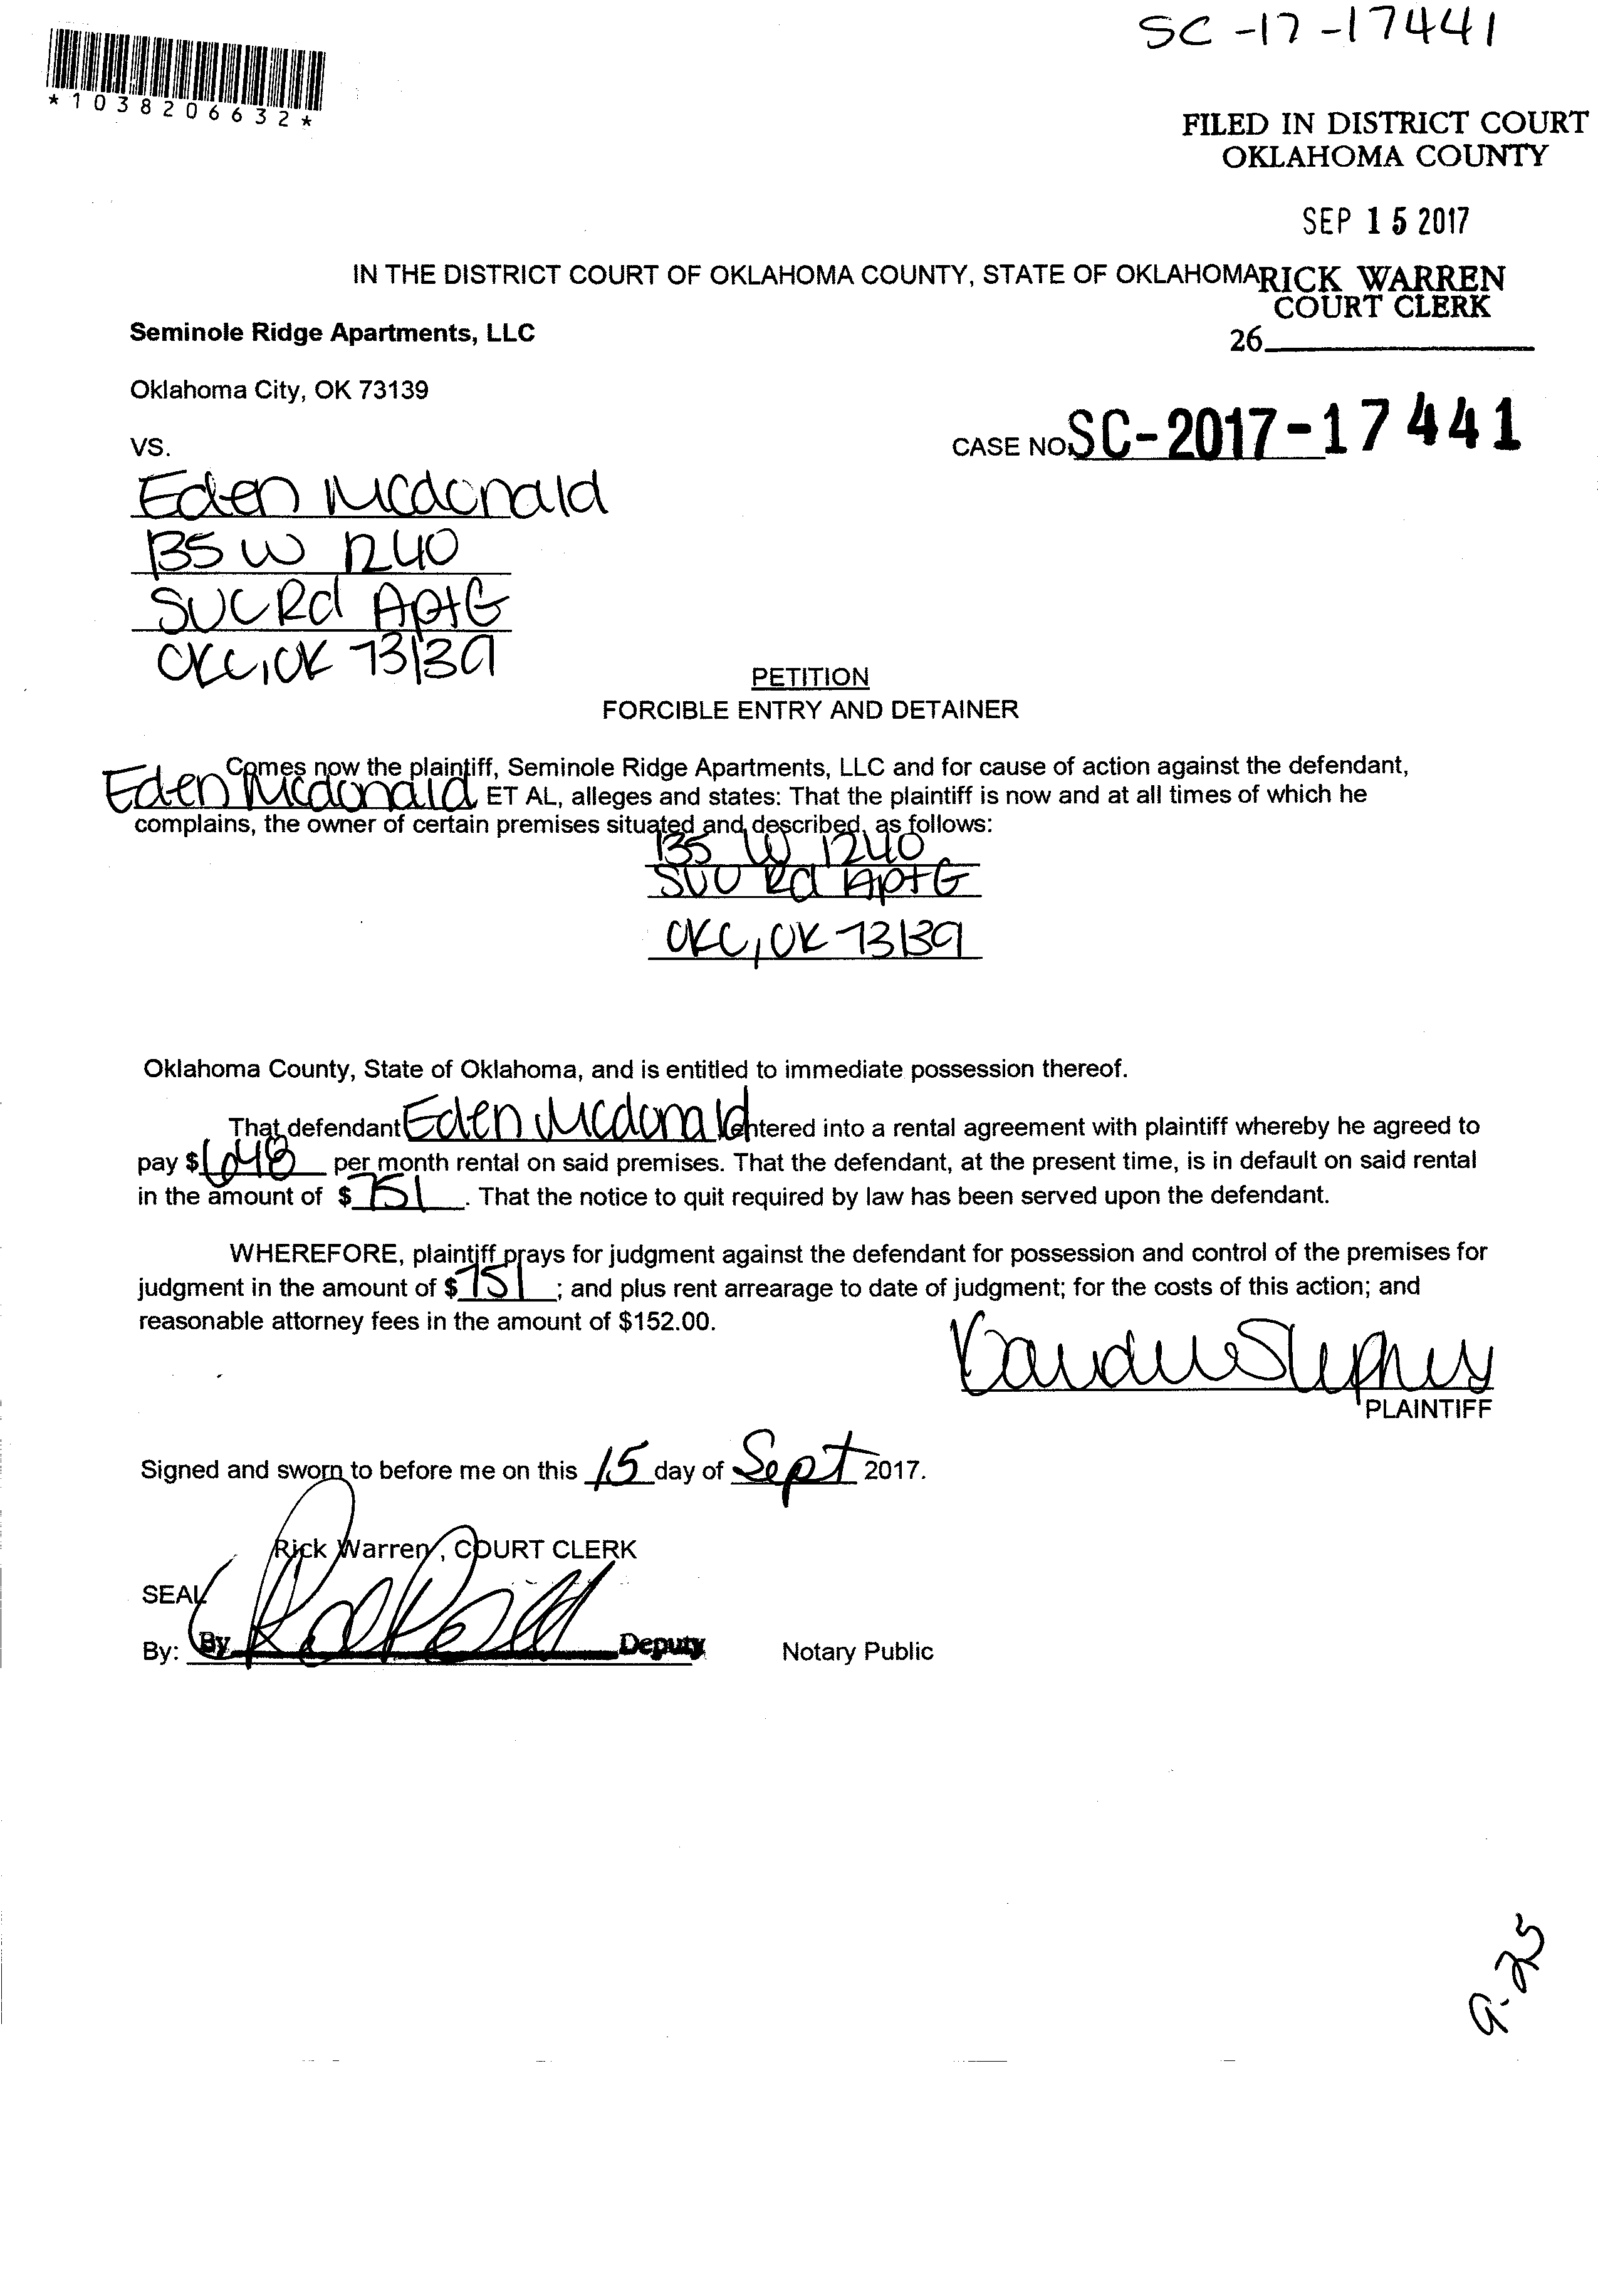 SC-17-17441
*1038206632*
FILED IN DISTRICT COURT
OKLAHOMA COUNTY
SEP 15 2017
IN THE DISTRICT COURT OF OKLAHOMA COUNTY, STATE OF OKLAHOMA
RICK WARREN
COURT CLERK
26
Seminole Ridge Apartments, LLC
Oklahoma City, OK 73139
VS.
CASE NO. SC-2017-17441
Eden Mcdonald
135 W 1240
Rd Apt G
OKC, OK 73139
PETITION
FORCIBLE ENTRY AND DETAINER
Comes now the plaintiff, Seminole Ridge Apartments, LLC and for cause of action against the defendant,
Eden Mcdonald ET AL, alleges and states: That the plaintiff is now and at all times of which he
complains, the owner of certain premises situated and described, as follows:
135 W 1240
Rd Apt G
OKC, OK 73139
Oklahoma County, State of Oklahoma, and is entitled to immediate possession thereof.
That defendant Eden Mcdonald entered into a rental agreement with plaintiff whereby he agreed to
pay $ per month rental on said premises. That the defendant, at the present time, is in default on said rental
in the amount of $ 751. That the notice to quit required by law has been served upon the defendant.
WHEREFORE, plaintiff prays for judgment against the defendant for possession and control of the premises for
judgment in the amount of $ 751; and plus rent arrearage to date of judgment; for the costs of this action; and
reasonable attorney fees in the amount of $152.00.
PLAINTIFF
Signed and sworn to before me on this 15 day of Sept 2017.
Rick Warren, COURT CLERK
SEAL
By: By Deputy Notary Public
9-25